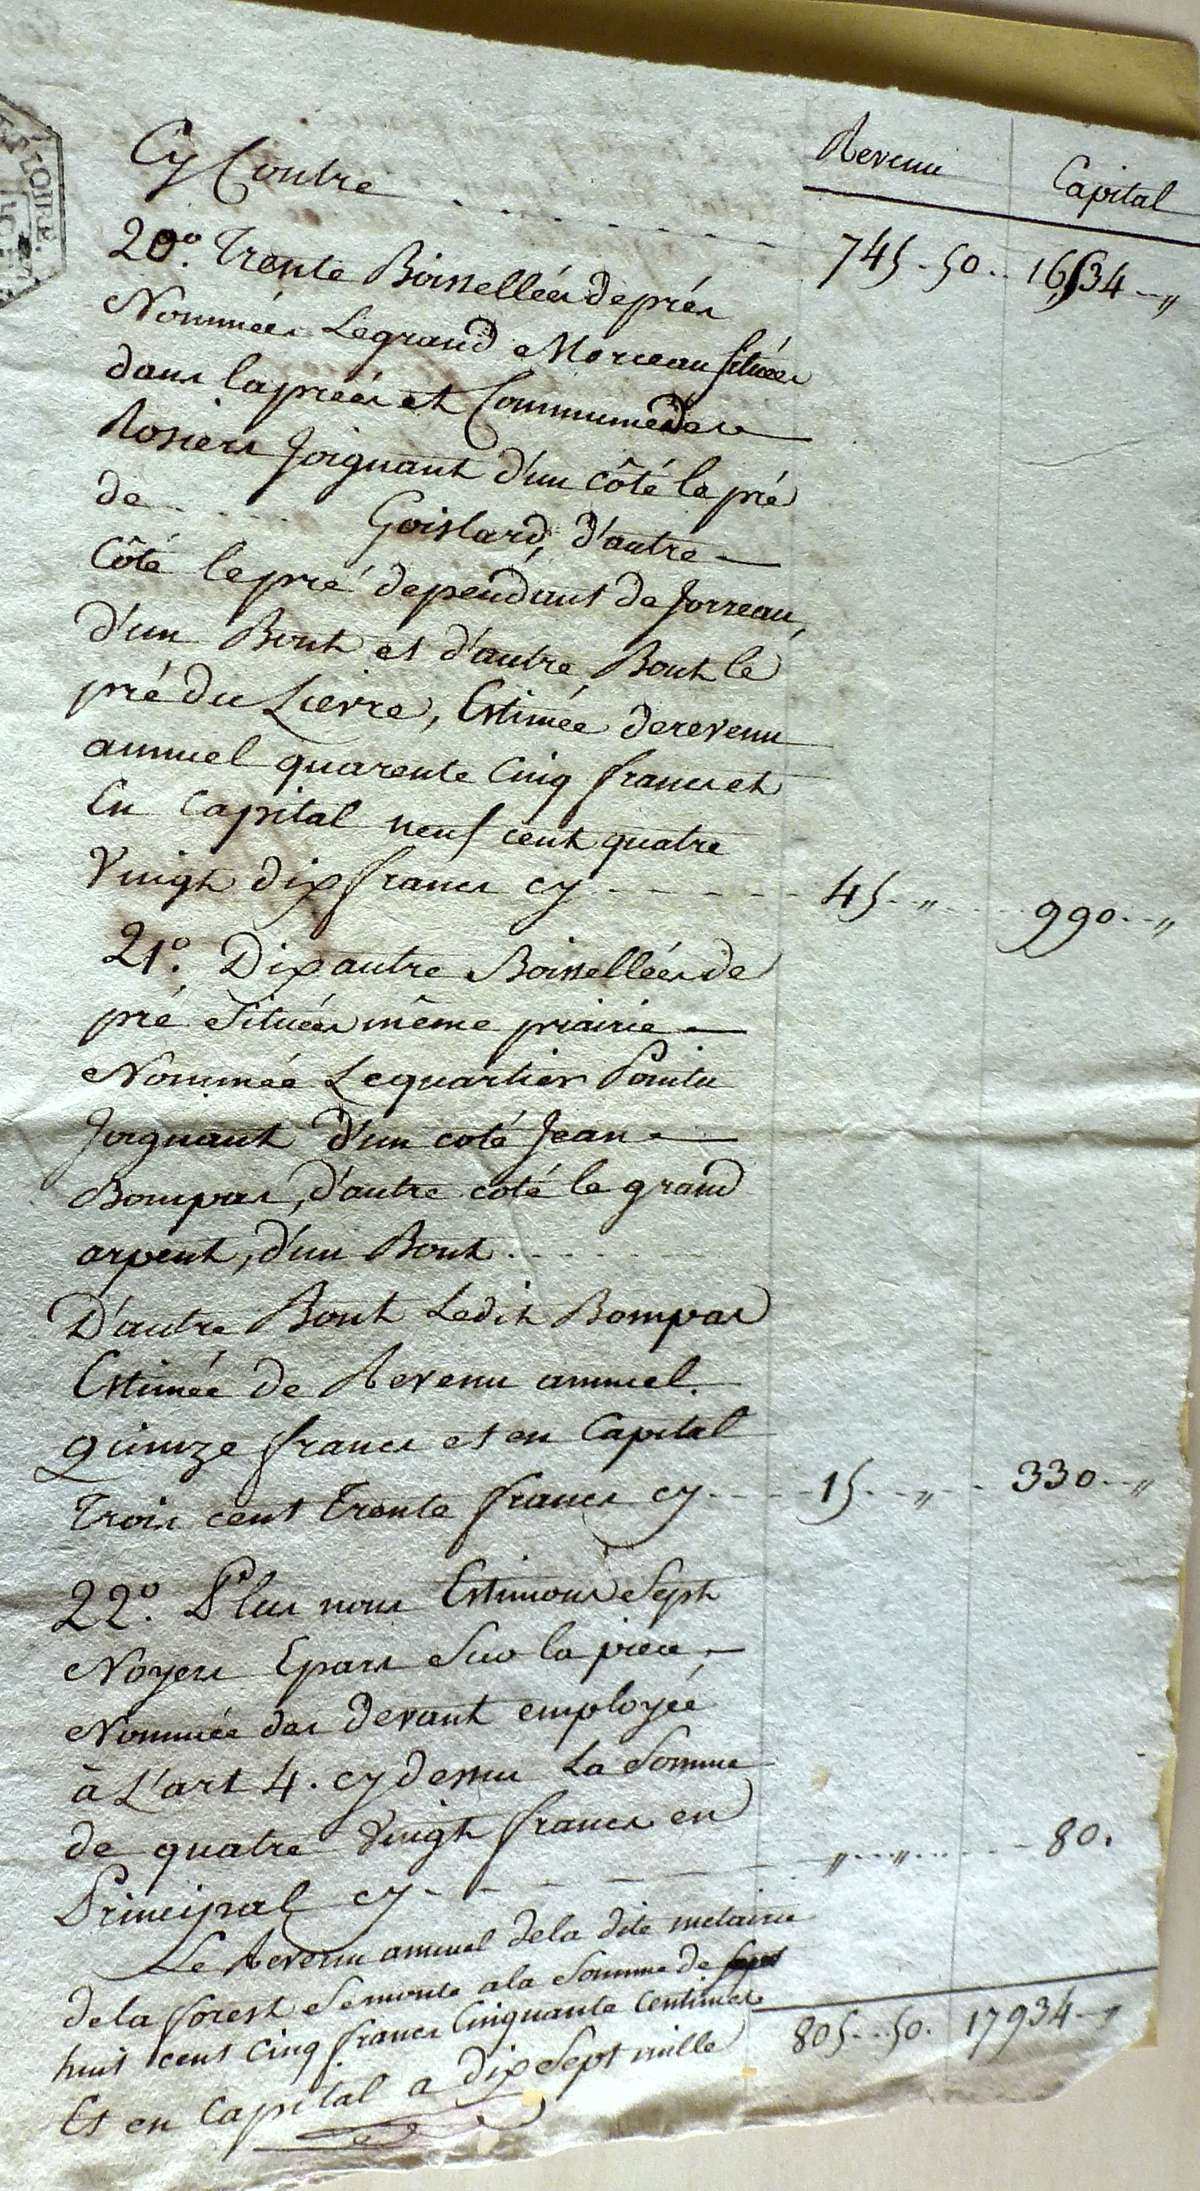 Revenu Capital
Cy Contre 745 . 50 . . 16534 . . "
20º. Trente Boisselléés de prés
Nommées Le grand Morceau situées
dans la préés et Commune des
Rosiers Joignant d'un côté le pré
de . . . . . Goislard, d'autre
Côté le pré dépendant de Jorreau,
d'un Bout et d'autre Bout le
pré du Lievre, Estimée de revenu
annuel quarente Cinq francs et
En Capital neuf cent quatre
Vingt dix francs cy 45 . " 990 . . "
21º. Dix autre Boisselléés de
pré Situées même prairie
Nommée Le quartier Pointu
Joignant d'un coté Jean
Bompas, d'autre coté le grand
arpent, d'un Bout . . . . .
D'autre Bout Ledit Bompas
Estimée de Revenu annuel.
quinze francs et en Capital
Trois cent Trente francs cy 15 . . " 330 . . "
22º. Plus nous Estimons Sept
Noyers Epars Sur la piece
Nommée das devant employéé
à L'art 4. cy dessu La Somme
de quatre Vingt francs en
Principal cy " . . " 80.
Le Revenu annuel de la dite metairie
de la forest Se monte a la Somme de sept
huit cent Cinq francs Cinquante Centimes
Et en Capital a dix Sept mille
805 . . 50. 17934 . . "